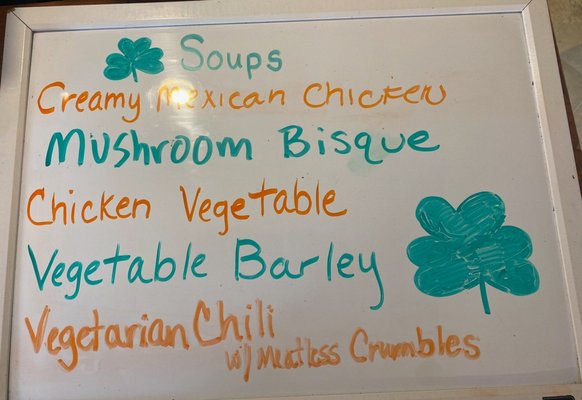 Soups
Creamy Mexican Chicken
Mushroom Bisque
Chicken Vegetable
Vegetable Barley
Vegetarian Chili
w/ Meatless Crumbles